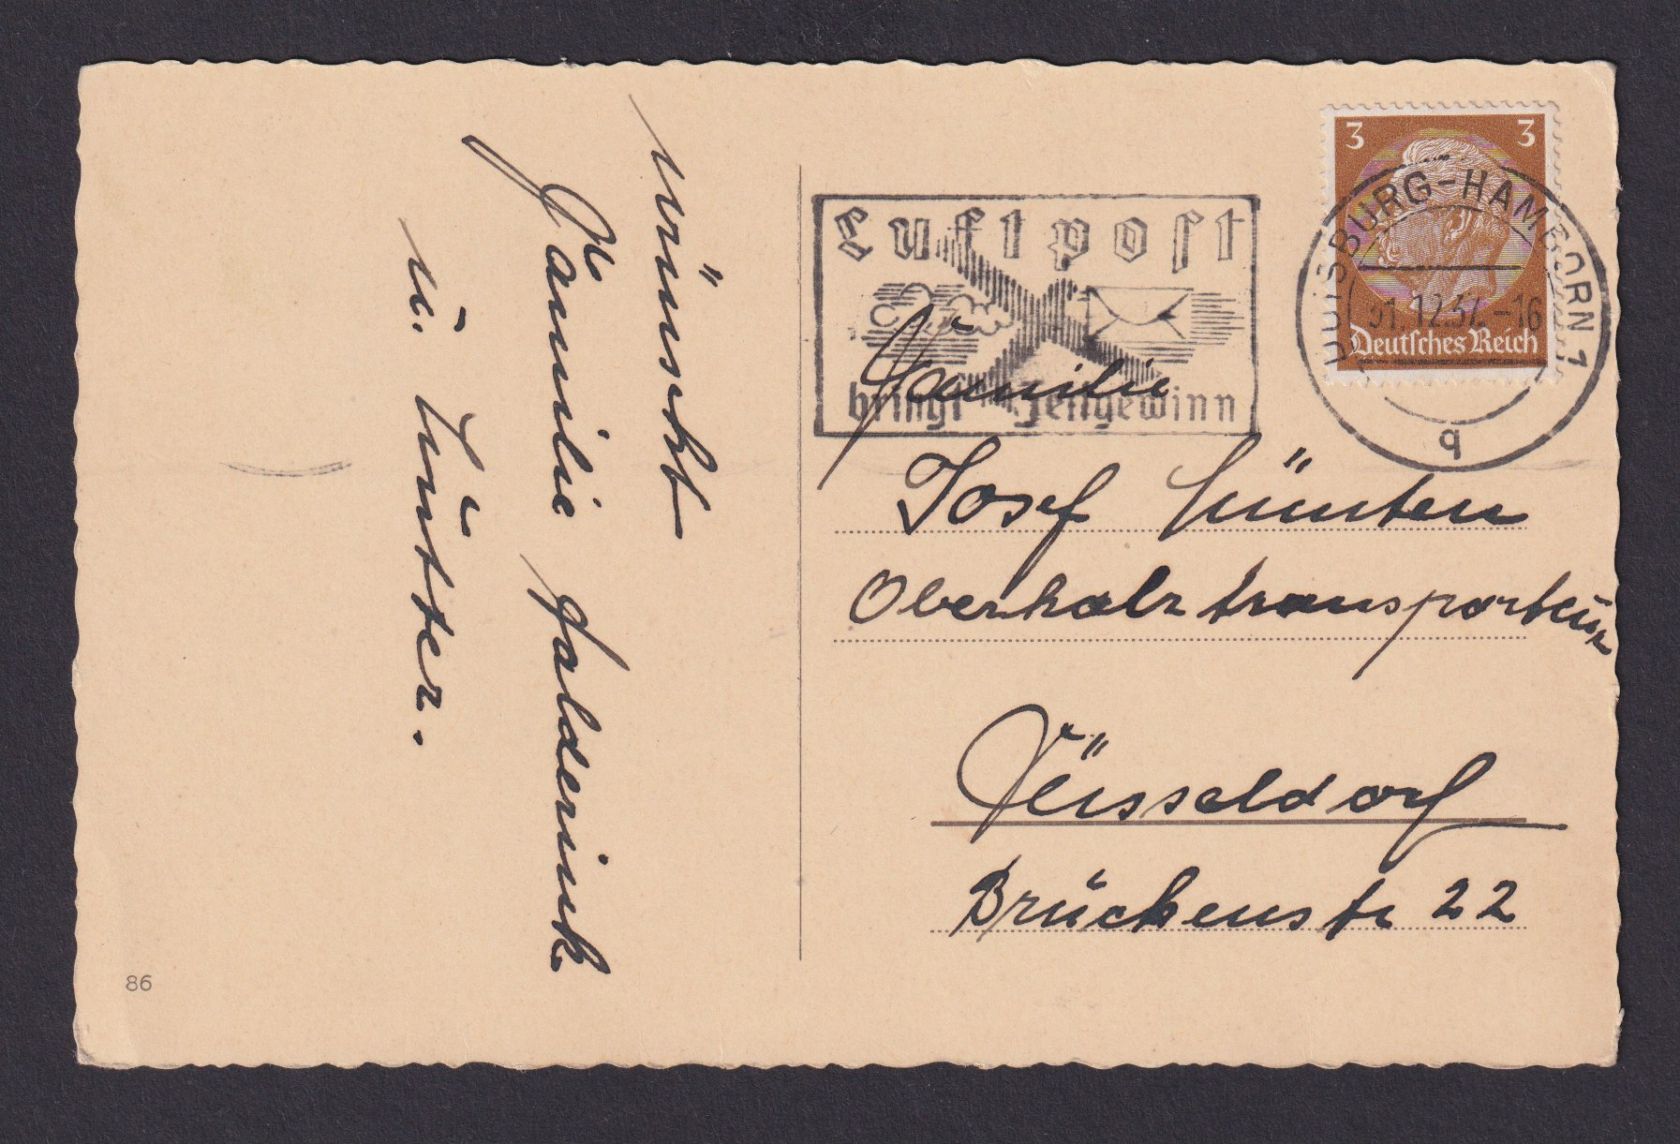 wünscht
Familie Halderink
u. Lüttez.
86
Luftpost
bringt Zeitgewinn
3 3
Deutsches Reich
DUISBURG-HAMBORN 1
31.12.37.-16
q
Familie
Josef Lünten
Oberholztransporteur
Düsseldorf
Brückenstr 22